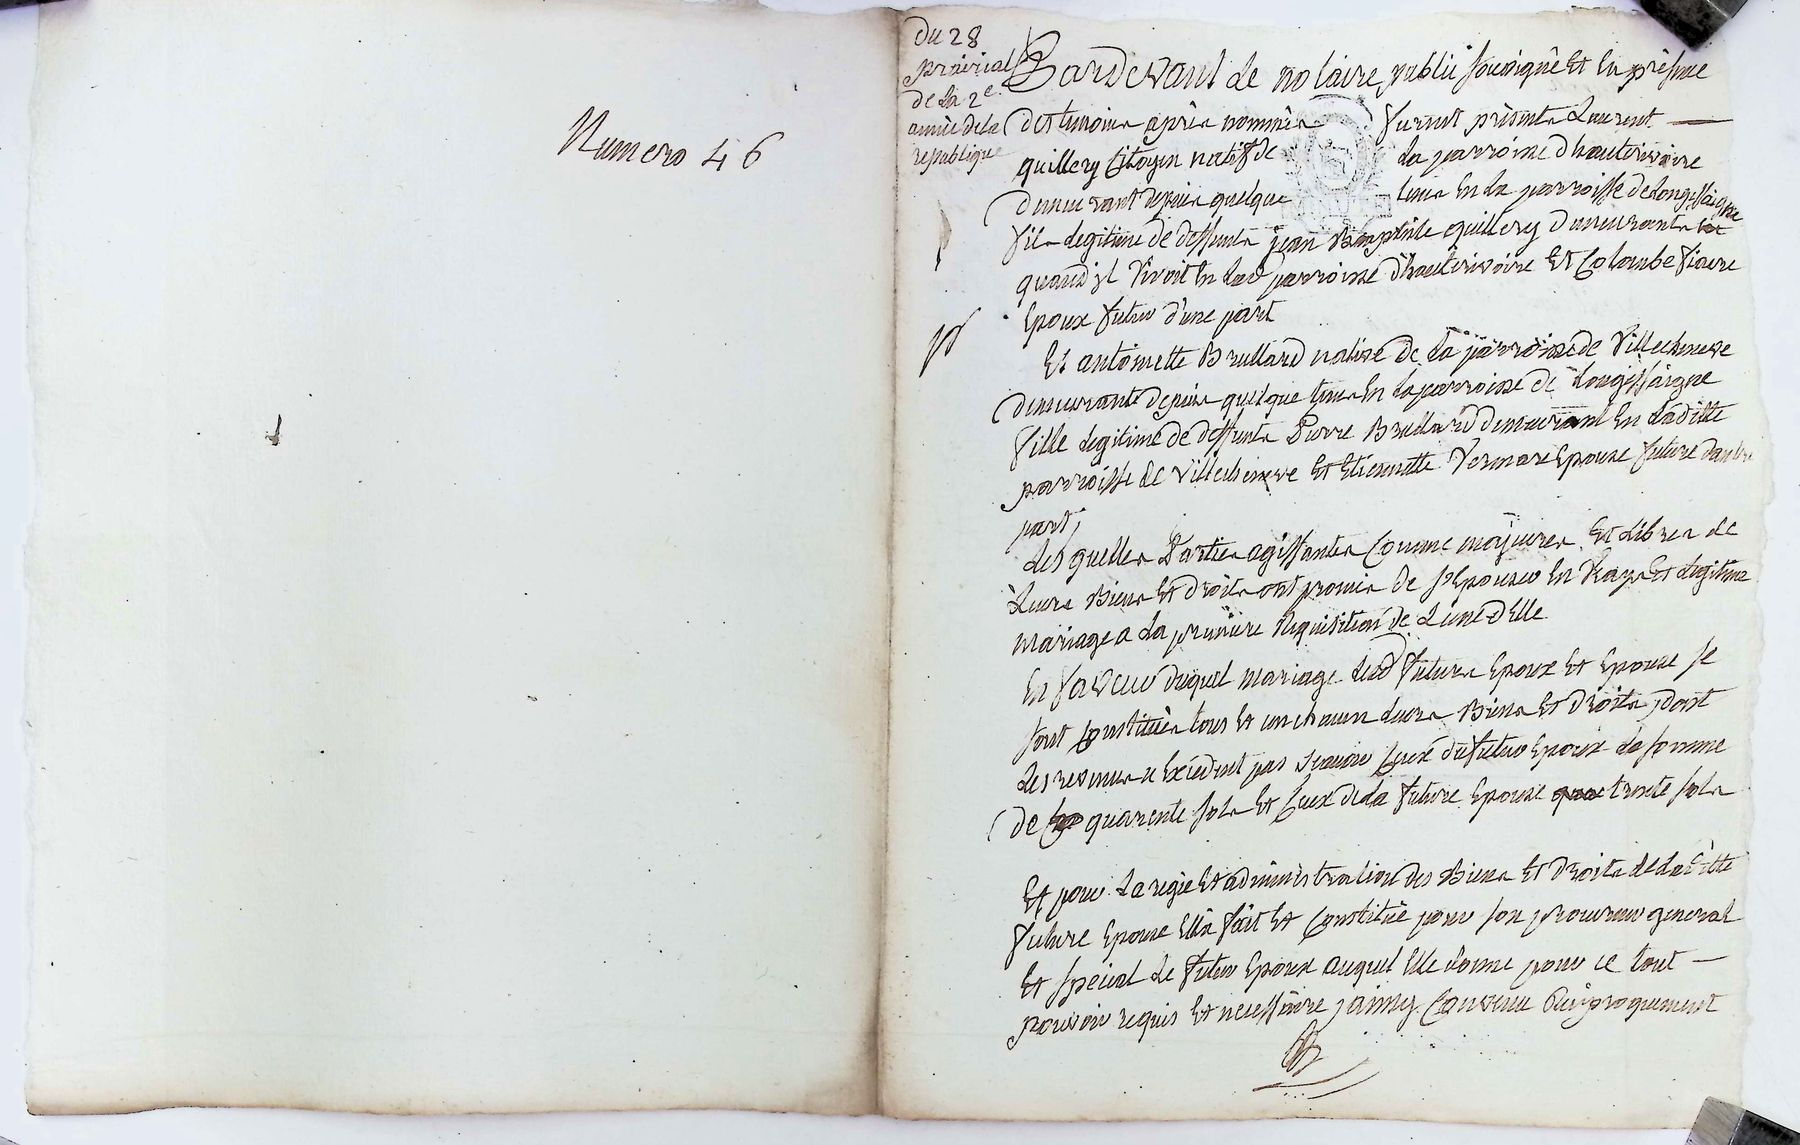 Numero 46
du 28
prairial
de la 2e
année de la
republique
Pardevant le notaire public soussigné Et En présence
des temoins après nommés furent présents Laurent
quillery Citoyen natif de la parroisse d'hauterivoire
demeurant depuis quelque tems En la parroisse de Longessaigne
fils legitime de deffunts jean Baptiste quillery demeurants
quand il vivoit En lad parroisse d'hauterivoire Et Colombe
Epoux futur d'une part
Et antoinette Brullard native de la parroisse de Villecheneve
demeurante depuis quelque tems En la parroisse de Longessaigne
fille legitime de deffunts Pierre Brullard demeurant En laditte
parroisse de Villecheneve Et Etiennette Vermare Epouse future d'autre
part,
des quelles Parties agissantes Comme majeures Et Libres de
Leurs Biens Et droits ont promis de s'Epouser En vray Et legitime
mariage a La première Requisition de L'une d'Elle
En faveur duquel mariage lesd futurs Epoux Et Epouse se
sont Constitués tous Et un chacun Leurs Biens Et droits, dont
Les revenus n'Excedent pas scavoir Ceux du futur Epoux la somme
de quarente sols Et Ceux de la future Epouse trente sols
Et pour La regie Et administration des Biens Et droits de laditte
future Epouse Elle a fait Et Constitué pour son procureur general
Et special Le futur Epoux auquel Elle donne pour ce tout
pouvoir requis Et necessaire, ainsy Convenu Reciproquement